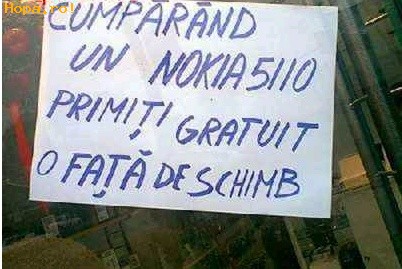 Hopa.ro!
CUMPĂRÂND
UN NOKIA 5110
PRIMIȚI GRATUIT
O FAȚĂ DE SCHIMB